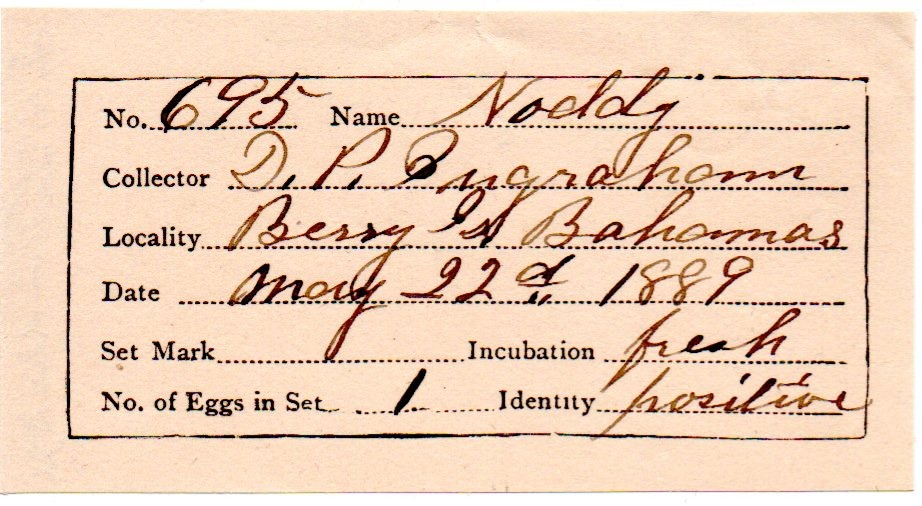 No. 695 Name Noddy
Collector D. P. Ingraham
Locality Berry Is Bahamas
Date May 22d, 1889
Set Mark Incubation fresh
No. of Eggs in Set 1 Identity positive